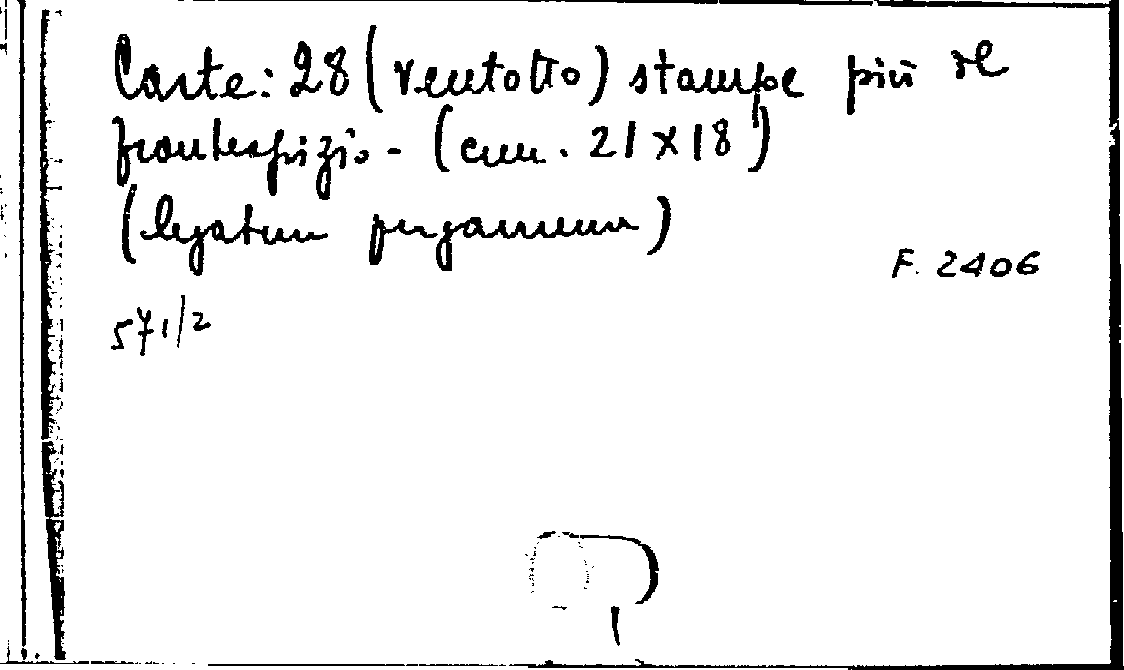 Carte: 28 (ventotto) stampe più il
frontespizio - (cm. 21 x 18)
(legatura pergamena)
F. 2406
571/2